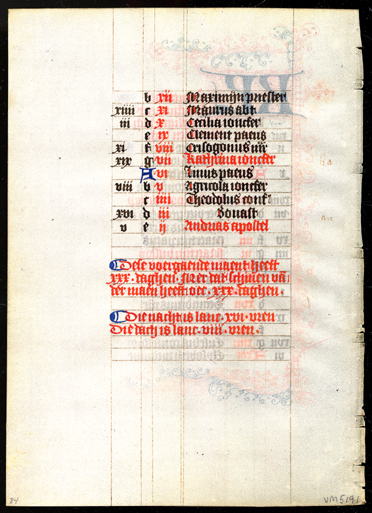 b xii Maximijn priester
xiiii c xi Maurus abt
iii d x Cecilia ioncfer
e ix Clement paeus
xi f viii Crisogonus mr
xix g vii Katherina ioncfer
A vi Linus paeus
viii b v Agricola ioncfer
c iiii Theodolus conf
xvi d iii Vonast
v e ii Andrias apostel
Dese voergaende maent heeft
xxx. daghen. Mer dat schinen vā
der maen heeft oec. xxx. daghen.
Die nacht is lanc. xvi. vren
Die dach is lanc. viii. vren.
VM5191